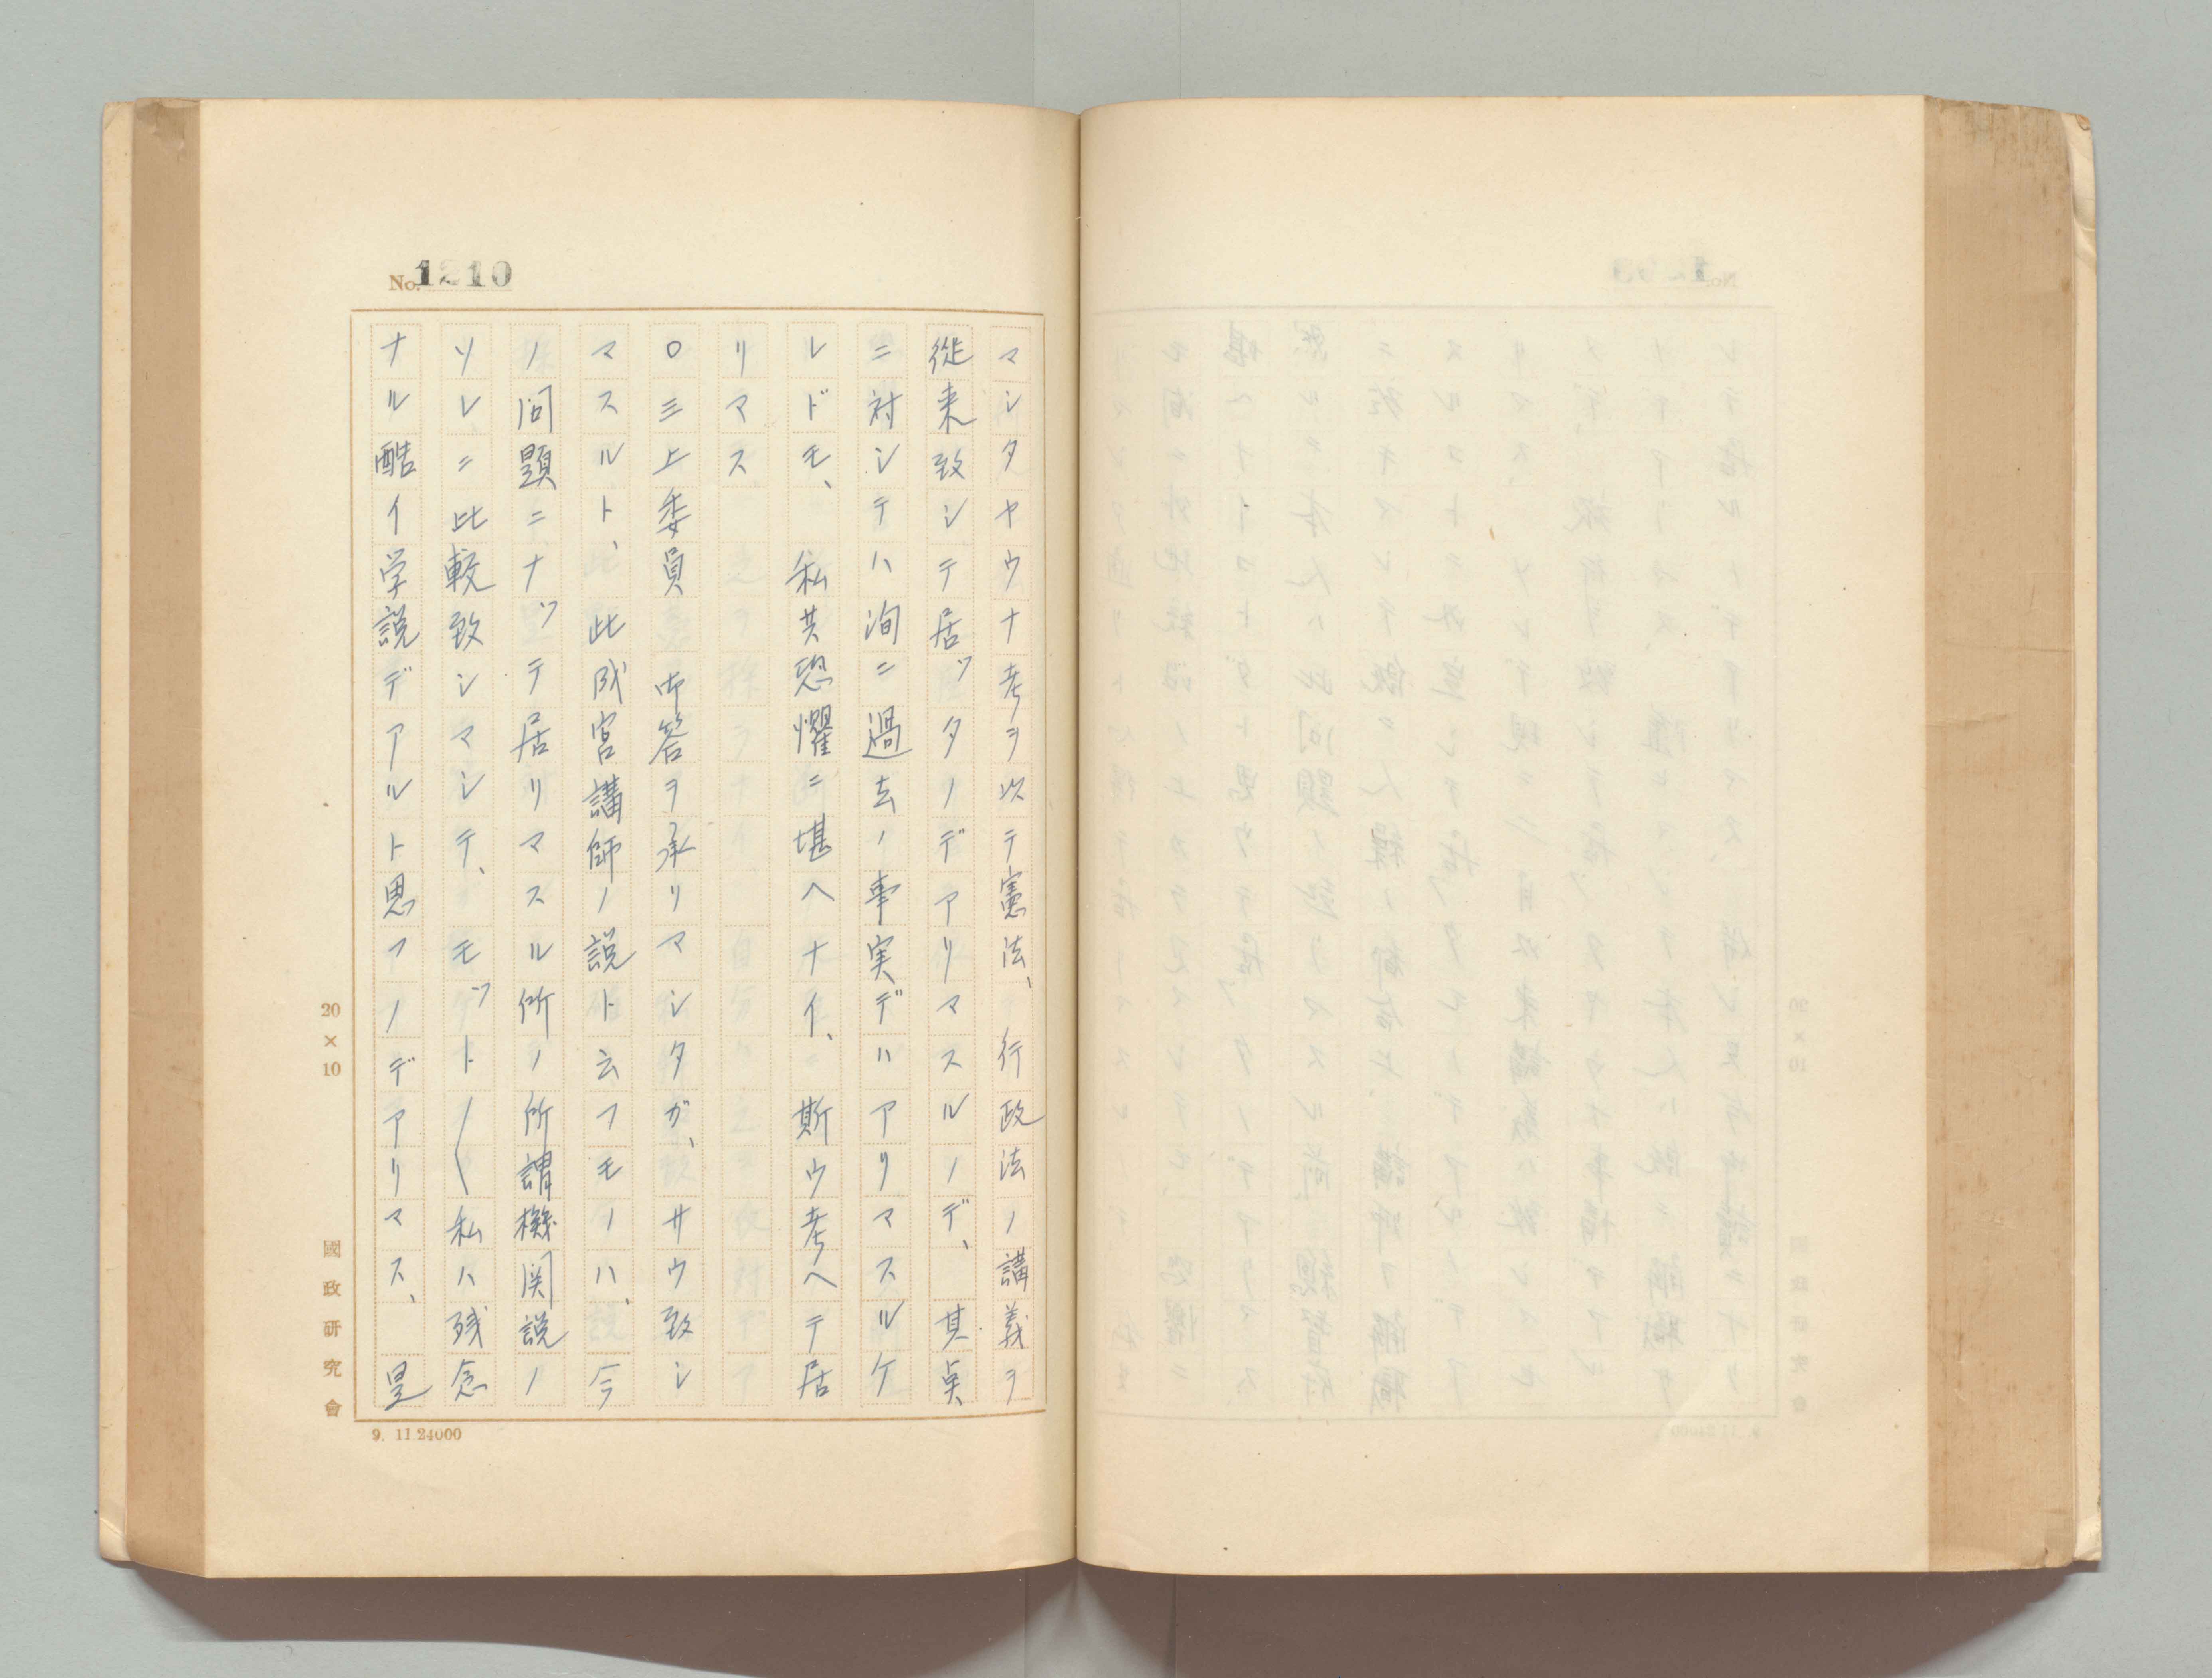 No. 1210
マシタヤウナ考ヲ以テ憲法、行政法ノ講義ヲ
従来致シテ居ッタノデアリマスルノデ、其点
ニ対シテハ洵ニ過去ノ事実デハアリマスルケ
レドモ、私共恐懼ニ堪ヘナイ、斯ウ考ヘテ居
リマス
〇三上委員 御答ヲ承リマシタガ、サウ致シ
マスルト、此成宮講師ノ説ト云フモノハ、今
ノ問題ニナッテ居リマスル所ノ所謂機関説ノ
ソレニ比較致シマシテ、モット〱私ハ残念
ナル酷イ学説デアルト思フノデアリマス、是
20×10
國政研究會
9. 11.24000